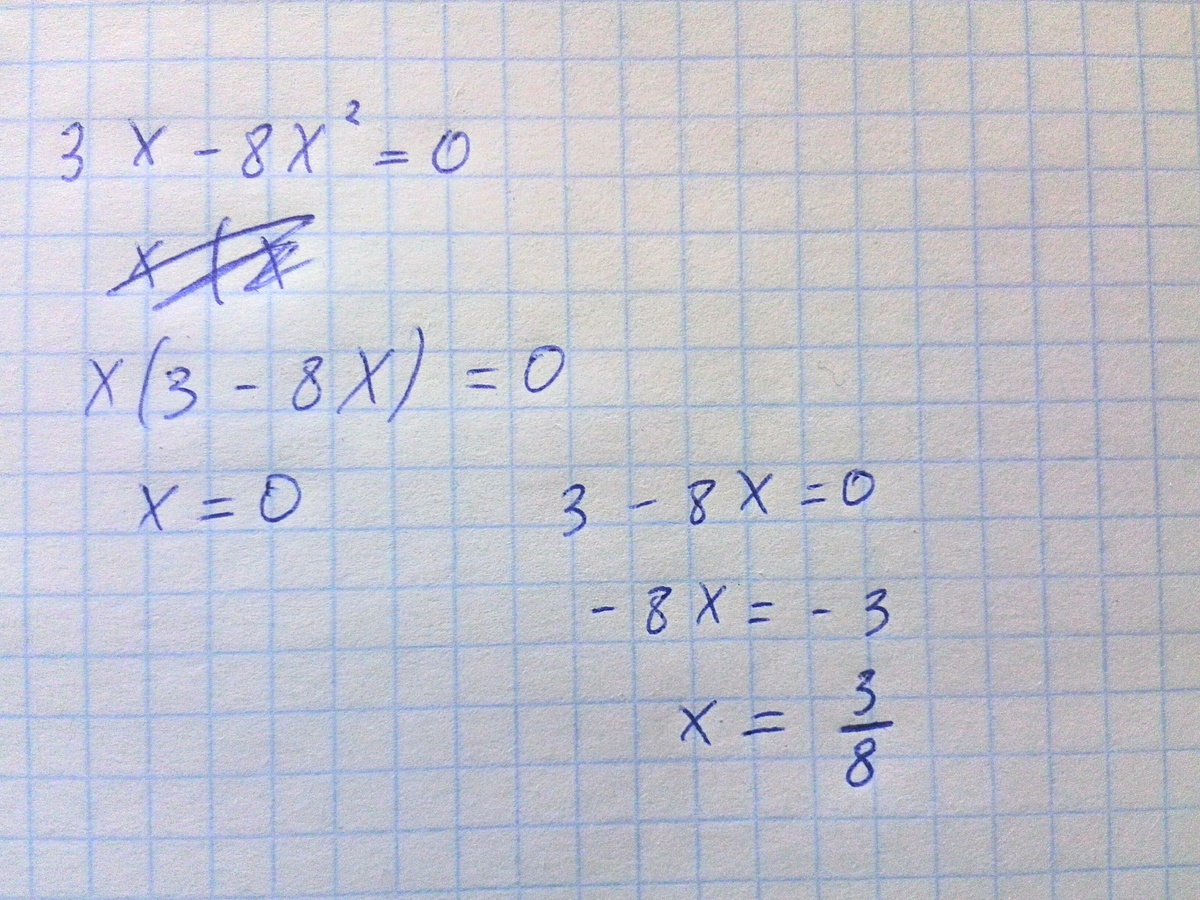 3x - 8x² = 0
x(3 - 8x) = 0
x = 0
3 - 8x = 0
- 8x = - 3
x = 3/8